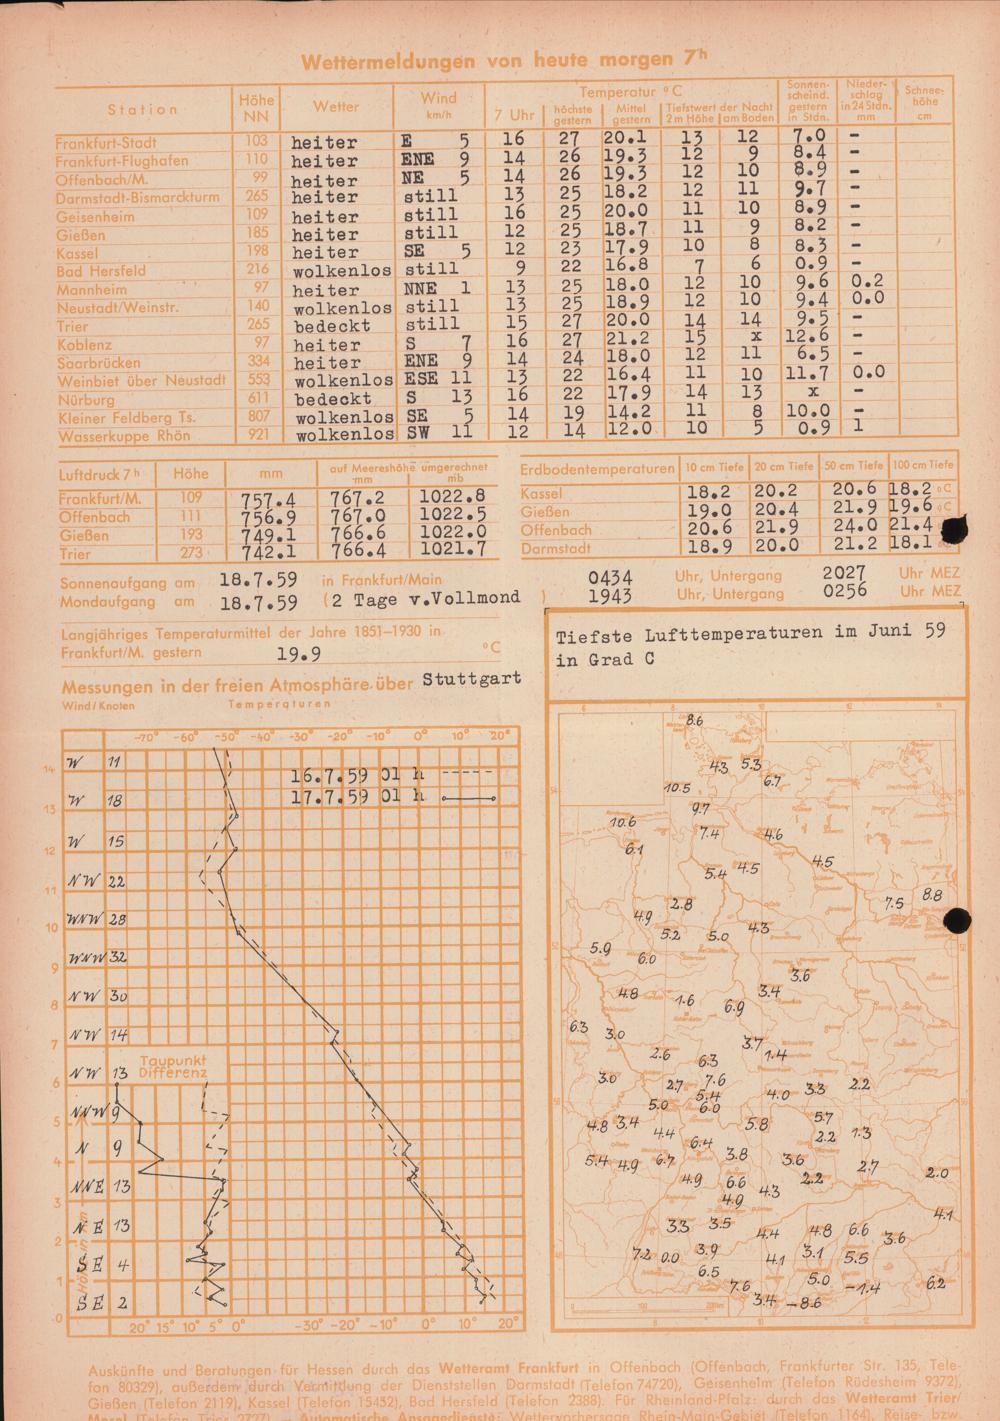 Wettermeldungen von heute morgen 7h
Station Höhe NN Wetter Wind km/h Temperatur °C Sonnen-scheind. gestern in Stdn. Nieder-schlag in 24 Stdn. mm Schnee-höhe cm
7 Uhr höchste gestern Mittel gestern Tiefstwert der Nacht 2 m Höhe am Boden
Frankfurt-Stadt 103 heiter E 5 16 27 20.1 13 12 7.0 -
Frankfurt-Flughafen 110 heiter ENE 9 14 26 19.3 12 9 8.4 -
Offenbach/M. 99 heiter NE 5 14 26 19.3 12 10 8.9 -
Darmstadt-Bismarckturm 265 heiter still 13 25 18.2 12 11 9.7 -
Geisenheim 109 heiter still 16 25 20.0 11 10 8.9 -
Gießen 185 heiter still 12 25 18.7 11 9 8.2 -
Kassel 198 heiter SE 5 12 23 17.9 10 8 8.3 -
Bad Hersfeld 216 wolkenlos still 9 22 16.8 7 6 0.9 -
Mannheim 97 heiter NNE 1 13 25 18.0 12 10 9.6 0.2
Neustadt/Weinstr. 140 wolkenlos still 13 25 18.9 12 10 9.4 0.0
Trier 265 bedeckt still 15 27 20.0 14 14 9.5 -
Koblenz 97 heiter S 7 16 27 21.2 15 x 12.6 -
Saarbrücken 334 heiter ENE 9 14 24 18.0 12 11 6.5 -
Weinbiet über Neustadt 553 wolkenlos ESE 11 13 22 16.4 11 10 11.7 0.0
Nürburg 611 bedeckt S 13 16 22 17.9 14 13 x -
Kleiner Feldberg Ts. 807 wolkenlos SE 5 14 19 14.2 11 8 10.0 -
Wasserkuppe Rhön 921 wolkenlos SW 11 12 14 12.0 10 5 0.9 1
Luftdruck 7h Höhe mm auf Meereshöhe umgerechnet mm mb
Frankfurt/M. 109 757.4 767.2 1022.8
Offenbach 111 756.9 767.0 1022.5
Gießen 193 749.1 766.6 1022.0
Trier 273 742.1 766.4 1021.7
Erdbodentemperaturen 10 cm Tiefe 20 cm Tiefe 50 cm Tiefe 100 cm Tiefe
Kassel 18.2 20.2 20.6 18.2 °C
Gießen 19.0 20.4 21.9 19.6 °C
Offenbach 20.6 21.9 24.0 21.4
Darmstadt 18.9 20.0 21.2 18.1 °C
Sonnenaufgang am 18.7.59 in Frankfurt/Main 0434 Uhr, Untergang 2027 Uhr MEZ
Mondaufgang am 18.7.59 (2 Tage v.Vollmond ) 1943 Uhr, Untergang 0256 Uhr MEZ
Langjähriges Temperaturmittel der Jahre 1851–1930 in
Frankfurt/M. gestern 19.9 °C
Messungen in der freien Atmosphäre über Stuttgart
Wind/Knoten Temperaturen
-70° -60° -50° -40° -30° -20° -10° 0° 10° 20°
16.7.59 01 h
17.7.59 01 h
W 11
14
W 18
13
W 15
12
NW 22
11
WNW 28
10
WNW 32
9
NW 30
8
NW 14
7
Taupunkt
Differenz
NW 13
6
NNW 9
5
N 9
4
NNE 13
3
NE 13
2
SE 4
1
SE 2
0
Höhe in km
20° 15° 10° 5° 0° -30° -20° -10° 0° 10° 20°
Tiefste Lufttemperaturen im Juni 59
in Grad C
8.6
4.3 5.3
10.5 6.7
9.7
10.6 7.4 4.6
6.1
4.5
5.4 4.5
8.8
2.8 7.5
4.9
5.2 5.0 4.3
5.9 6.0
3.6
4.8 1.6 6.9 3.4
6.3 3.0
3.7
2.6 6.3 1.4
3.0 2.7 7.6 4.0 3.3 2.2
5.4
5.0 6.0
4.8 3.4 5.8 5.7
4.4 6.4 2.2 1.3
5.4 4.9 6.7 3.8 3.6 2.7
4.9 6.6 2.2 2.0
4.9 4.3
3.3 3.5 4.4 4.8 6.6 3.6 4.1
7.2 0.0 3.9 4.1 3.1 5.5
6.5 7.6 5.0 -1.4 6.2
3.4 -8.6
Auskünfte und Beratungen für Hessen durch das Wetteramt Frankfurt in Offenbach (Offenbach, Frankfurter Str. 135, Tele-
fon 80329), außerdem durch Vermittlung der Dienststellen Darmstadt (Telefon 74720), Geisenheim (Telefon Rüdesheim 9372),
Gießen (Telefon 2119), Kassel (Telefon 15432), Bad Hersfeld (Telefon 2388). Für Rheinland-Pfalz: durch das Wetteramt Trier/
Mosel (Telefon Trier 2727). — Automatische Ansagedienste: Wettervorhersage Rhein-Main-Gebiet (Telefon 1164), Reise- bzw.